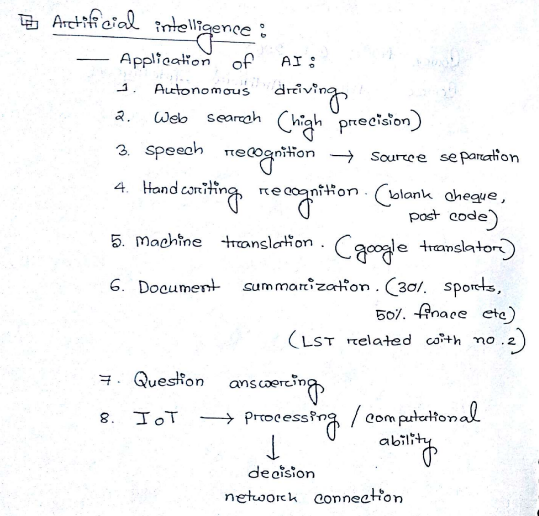 Artificial intelligence :
— Application of AI :
1. Autonomous driving
2. Web search (high precision)
3. speech recognition → source separation
4. Handwriting recognition. (blank cheque,
post code)
5. Machine translation. (google translator)
6. Document summarization. (30% sports,
50% finace etc)
(LST related with no.2)
7. Question answering
8. IoT → processing / computational
ability
↓
decision
network connection